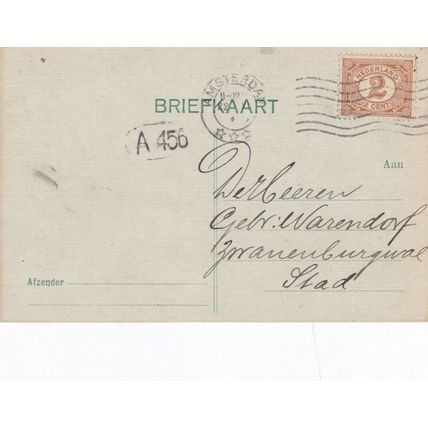 AMSTERDAM
NEDERLAND
2
2 CENT
BRIEFKAART
A 456
Aan
De Heeren
Gebr. Warendorf
Zwanenburgwal
Stad
Afzender